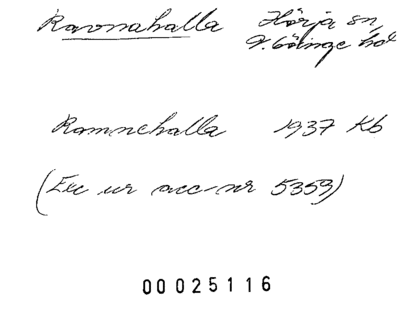 Ravnahalla Hörja sn,
V. Göinge hd
Ramnehalla 1937 Kb
(Exc ur acc-nr 5359)
00025116